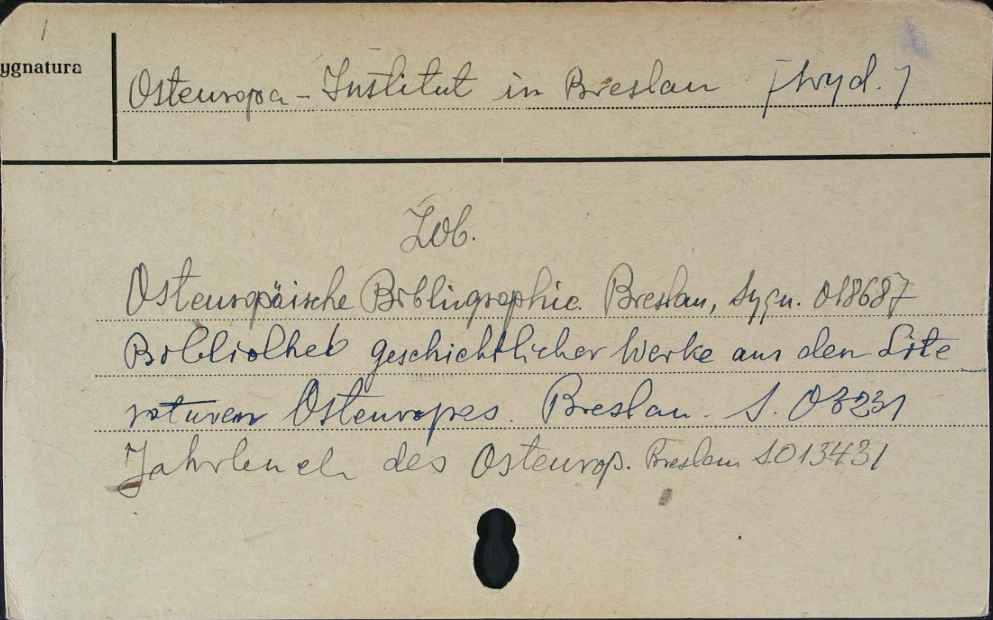 ygnatura
Osteuropa-Institut in Breslau [wyd.]
Zob.
Osteuropäische Bibliographie. Breslau, Sygn. 018687
Bibliothek geschichtlicher Werke aus den Lite
raturen Osteuropas. Breslau. S. 03231
Jahrbuch des Osteurop. Breslau S013431